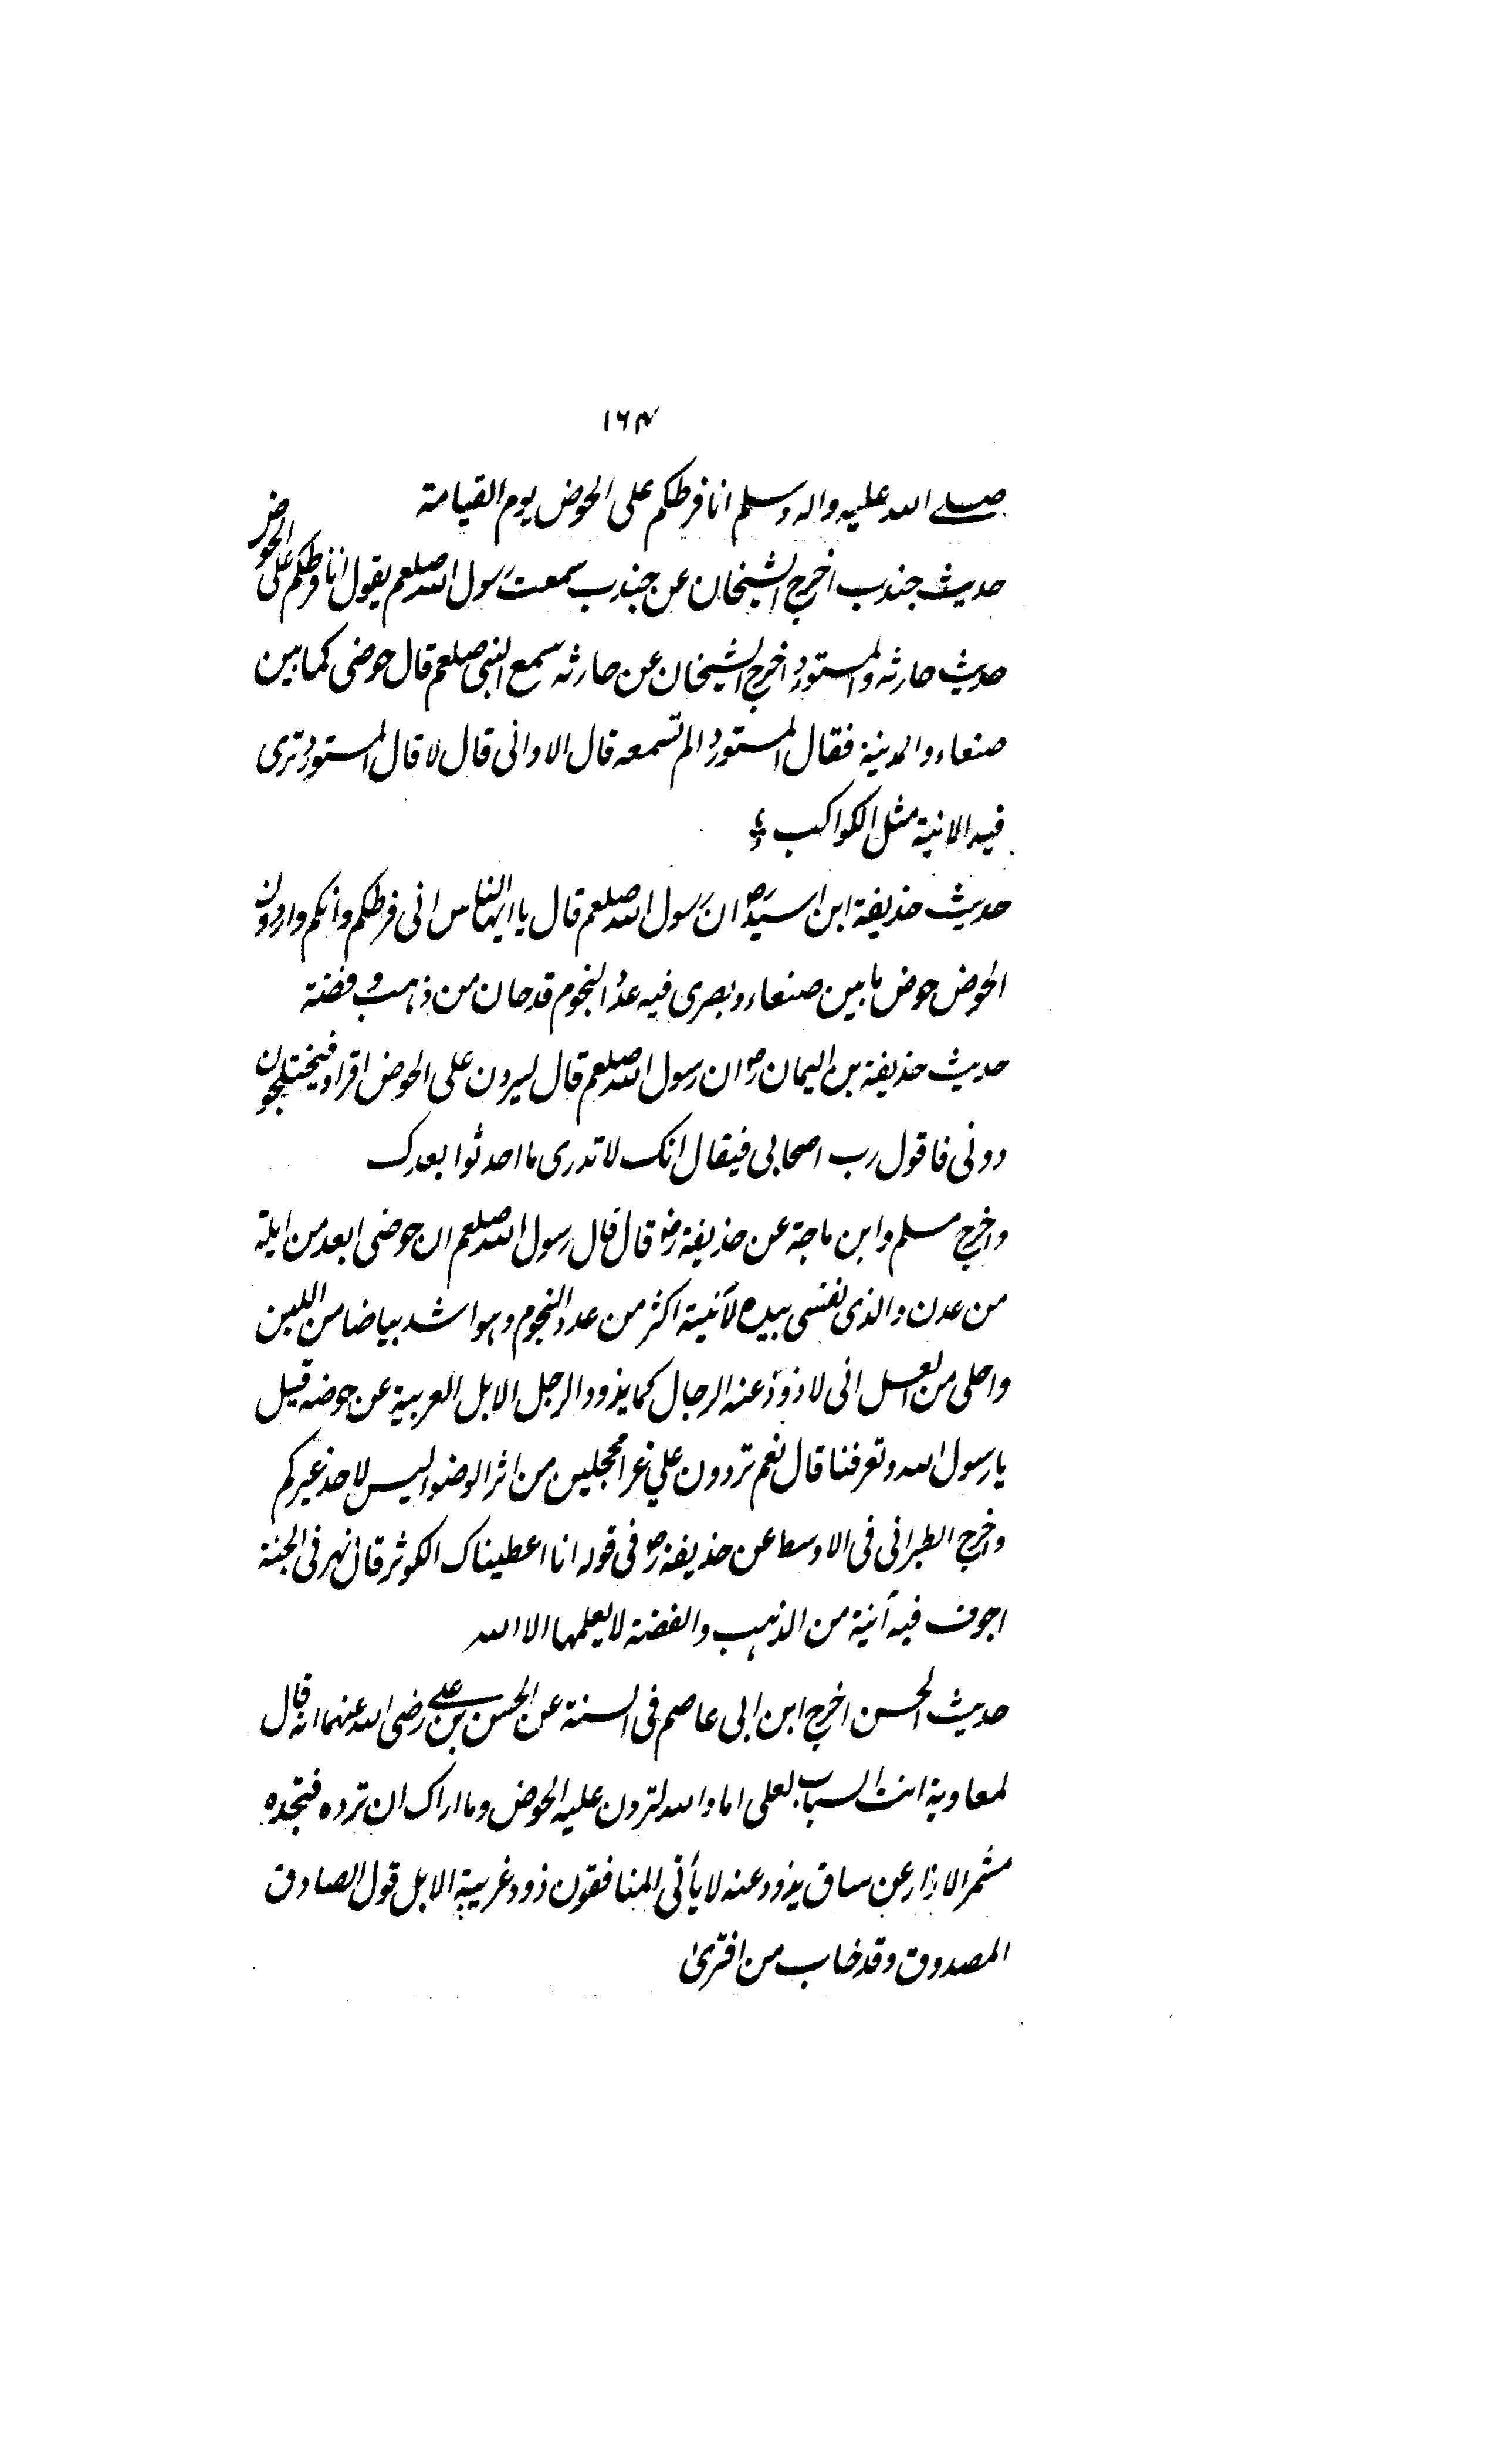 ١٦٣
صلے الله عليه واله وسلم انا فرطكم على الحوض يوم القيامة
حديث جندب اخرج الشيخان عن جندب سمعت رسول الله صلعم يقول انا فرطكم على الحوض
حديث حارثه والمستورد اخرج الشيخان عن حارثه سمع النبى صلعم قال حوضى كما بين
صنعاء والمدينة فقال المستورد الم تسمعه قال الاوانى قال لا قال المستورد ترى
فيه الانية مثل الكواكب
حديث حذيفة ابن اسيد رض ان رسول الله صلعم قال يا ايها الناس انى فرطكم وانكم واردون
الحوض حوض ما بين صنعاء وبصرى فيه عدد النجوم قدحان من ذهب و فضة
حديث حذيفة بن اليمان رض ان رسول الله صلعم قال ليردن على الحوض اقراد فيختلجون
دونى فاقول رب اصحابى فيقال انك لا تدرى ما احدثوا بعدك
واخرج مسلم وابن ماجة عن حذيفة رض قال قال رسول الله صلعم ان حوضى ابعد من ايلة
من عدن والذى نفسى بيده لآنية اكثر من عدد النجوم وهو اشد بياضا من اللبن
واحلى من العسل انى لاذود عنه الرجال كما يذود الرجل الابل العربية عن حوضه قيل
يا رسول الله وتعرفنا قال نعم تردون علي غرا محجلين من اثر الوضوا ليس لاحد غيركم
واخرج الطبرانى فى الاوسط عن حذيفة رض فى قوله انا اعطيناك الكوثر قال نهر فى الجنة
اجوف فيه آنية من الذهب والفضة لا يعلمها الا الله
حديث الحسن اخرج ابن ابى عاصم فى السنة عن الحسن بن علے رضى الله عنهما انه قال
لمعاوية انت السباب لعلى اما والله لتردن عليه الحوض وما اراك ان ترده فتجده
مشمر الازار عن ساق يذود عنه لا يأتى المنافقون ذود غريبة الابل قول الصادق
المصدوق وقد خاب من افترىٰ